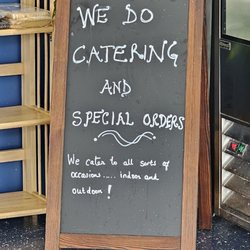 WE DO
CATERING
AND
SPECIAL ORDERS
We cater to all sorts of
occasions..... indoor and
outdoor!